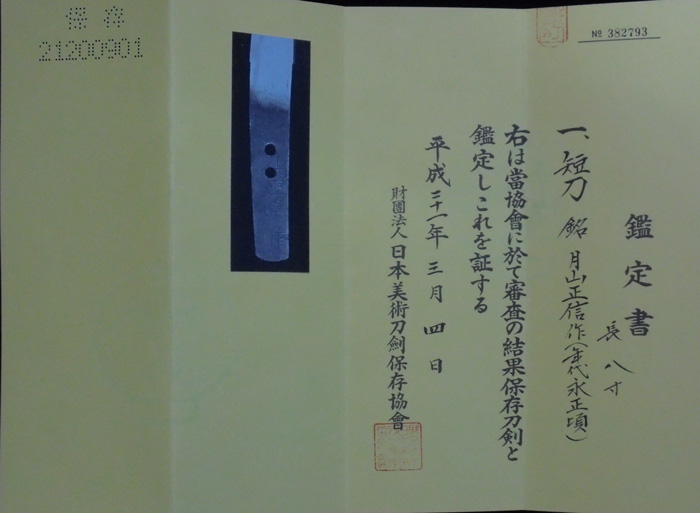 № 382793
鑑定書
一、短刀 銘 月山正信作(年代永正頃)
長 八寸
右は當協會に於て審査の結果保存刀剣と
鑑定しこれを証する
平成二十一年 三月 四日
財團法人 日本美術刀劍保存協會
保存
21200901